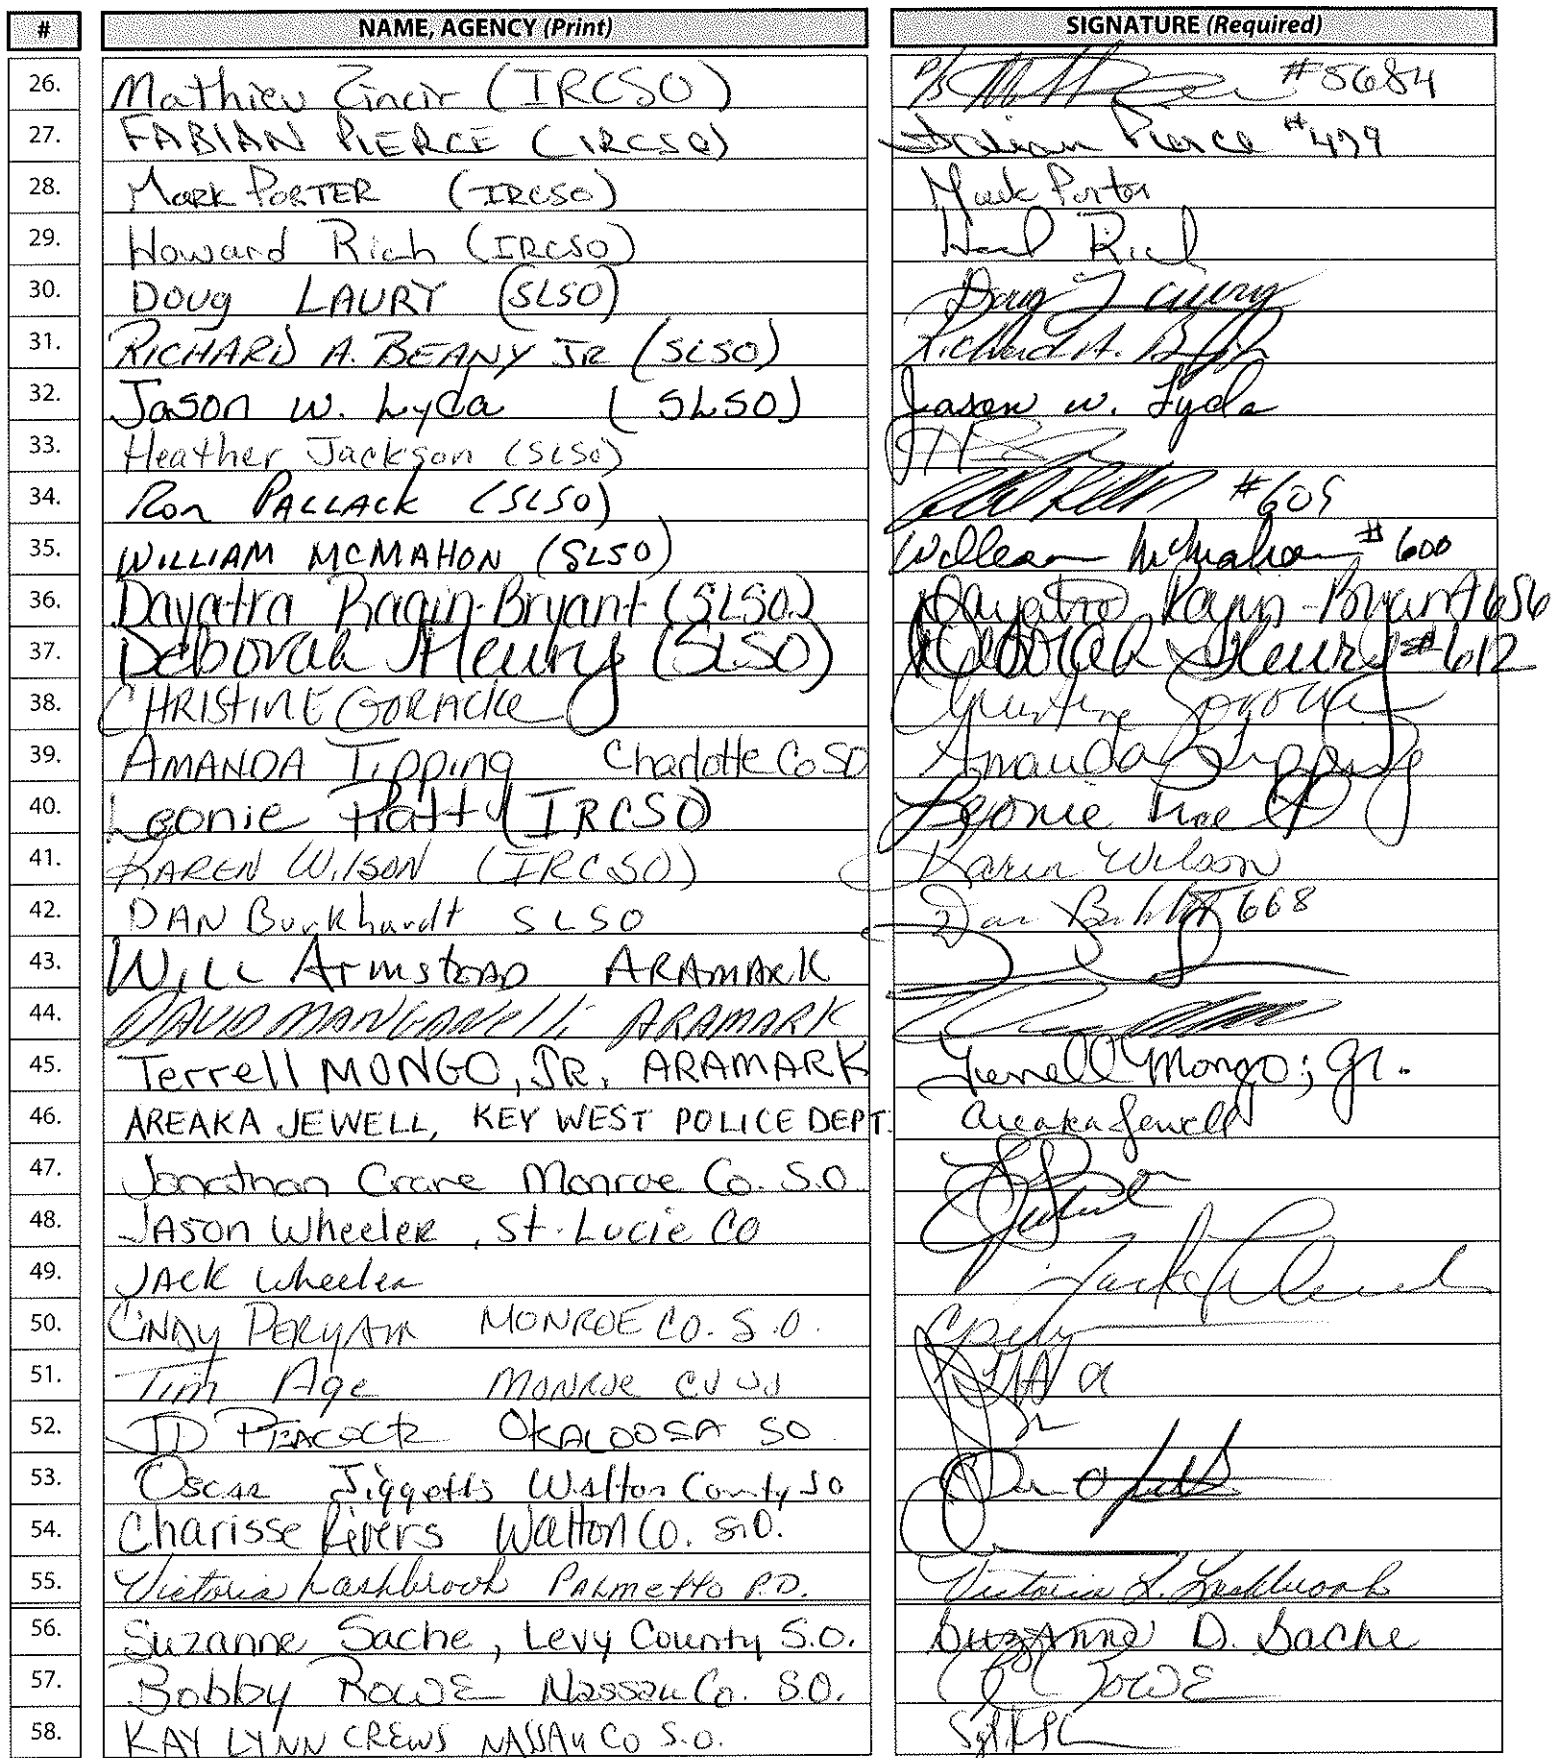 # NAME, AGENCY (Print) SIGNATURE (Required)
26. Mathieu Zincir (IRCSO) #5684
27. FABIAN PIERCE (IRCSO) Fabian Pierce #479
28. MARK PORTER (IRCSO) Mark Porter
29. Howard Rich (IRCSO) Rich
30. Doug LAURY (SLSO) Doug Laury
31. RICHARD A. BEANY JR (SLSO) Richard A.
32. Jason W. Lyda (SLSO) Jason W. Lyda
33. Heather Jackson (SLSO)
34. Ron PALLACK (SLSO) #609
35. WILLIAM MCMAHON (SLSO) William McMahon #600
36. Dayatra Ragin-Bryant (SLSO) Dayatra Ragin-Bryant 656
37. Deborah Fleury (SLSO) Deborah Fleury #612
38. CHRISTINE GORACKE Christine Goracke
39. AMANDA Tipping Charlotte Co SO Amanda Tipping
40. Leonie Pratt (IRCSO) Leonie Pratt
41. KAREN WILSON (IRCSO) Karen Wilson
42. DAN Burkhardt SLSO Dan 668
43. WILL Armstead ARAMARK
44. DAVID MANGANELLI ARAMARK
45. Terrell MONGO, JR. ARAMARK Terrell Mongo, Jr.
46. AREAKA JEWELL, KEY WEST POLICE DEPT. Areaka Jewell
47. Jonathan Crane Monroe Co. S.O.
48. JASON Wheeler, St. Lucie CO
49. JACK Wheeler
50. CINDY PERYAM MONROE CO. S.O.
51. Tim Age MONROE
52. JD PEACOCK OKALOOSA SO
53. Oscar Jiggetts Walton County SO
54. Charisse Rivers Walton Co. S.O.
55. Victoria Lashbrook PALMETTO P.D. Victoria L. Lashbrook
56. Suzanne Sache, Levy County S.O. Suzanne D. Sache
57. Bobby ROWE Nassau Co. S.O. ROWE
58. KAY LYNN CREWS NASSAU CO S.O. Sgt